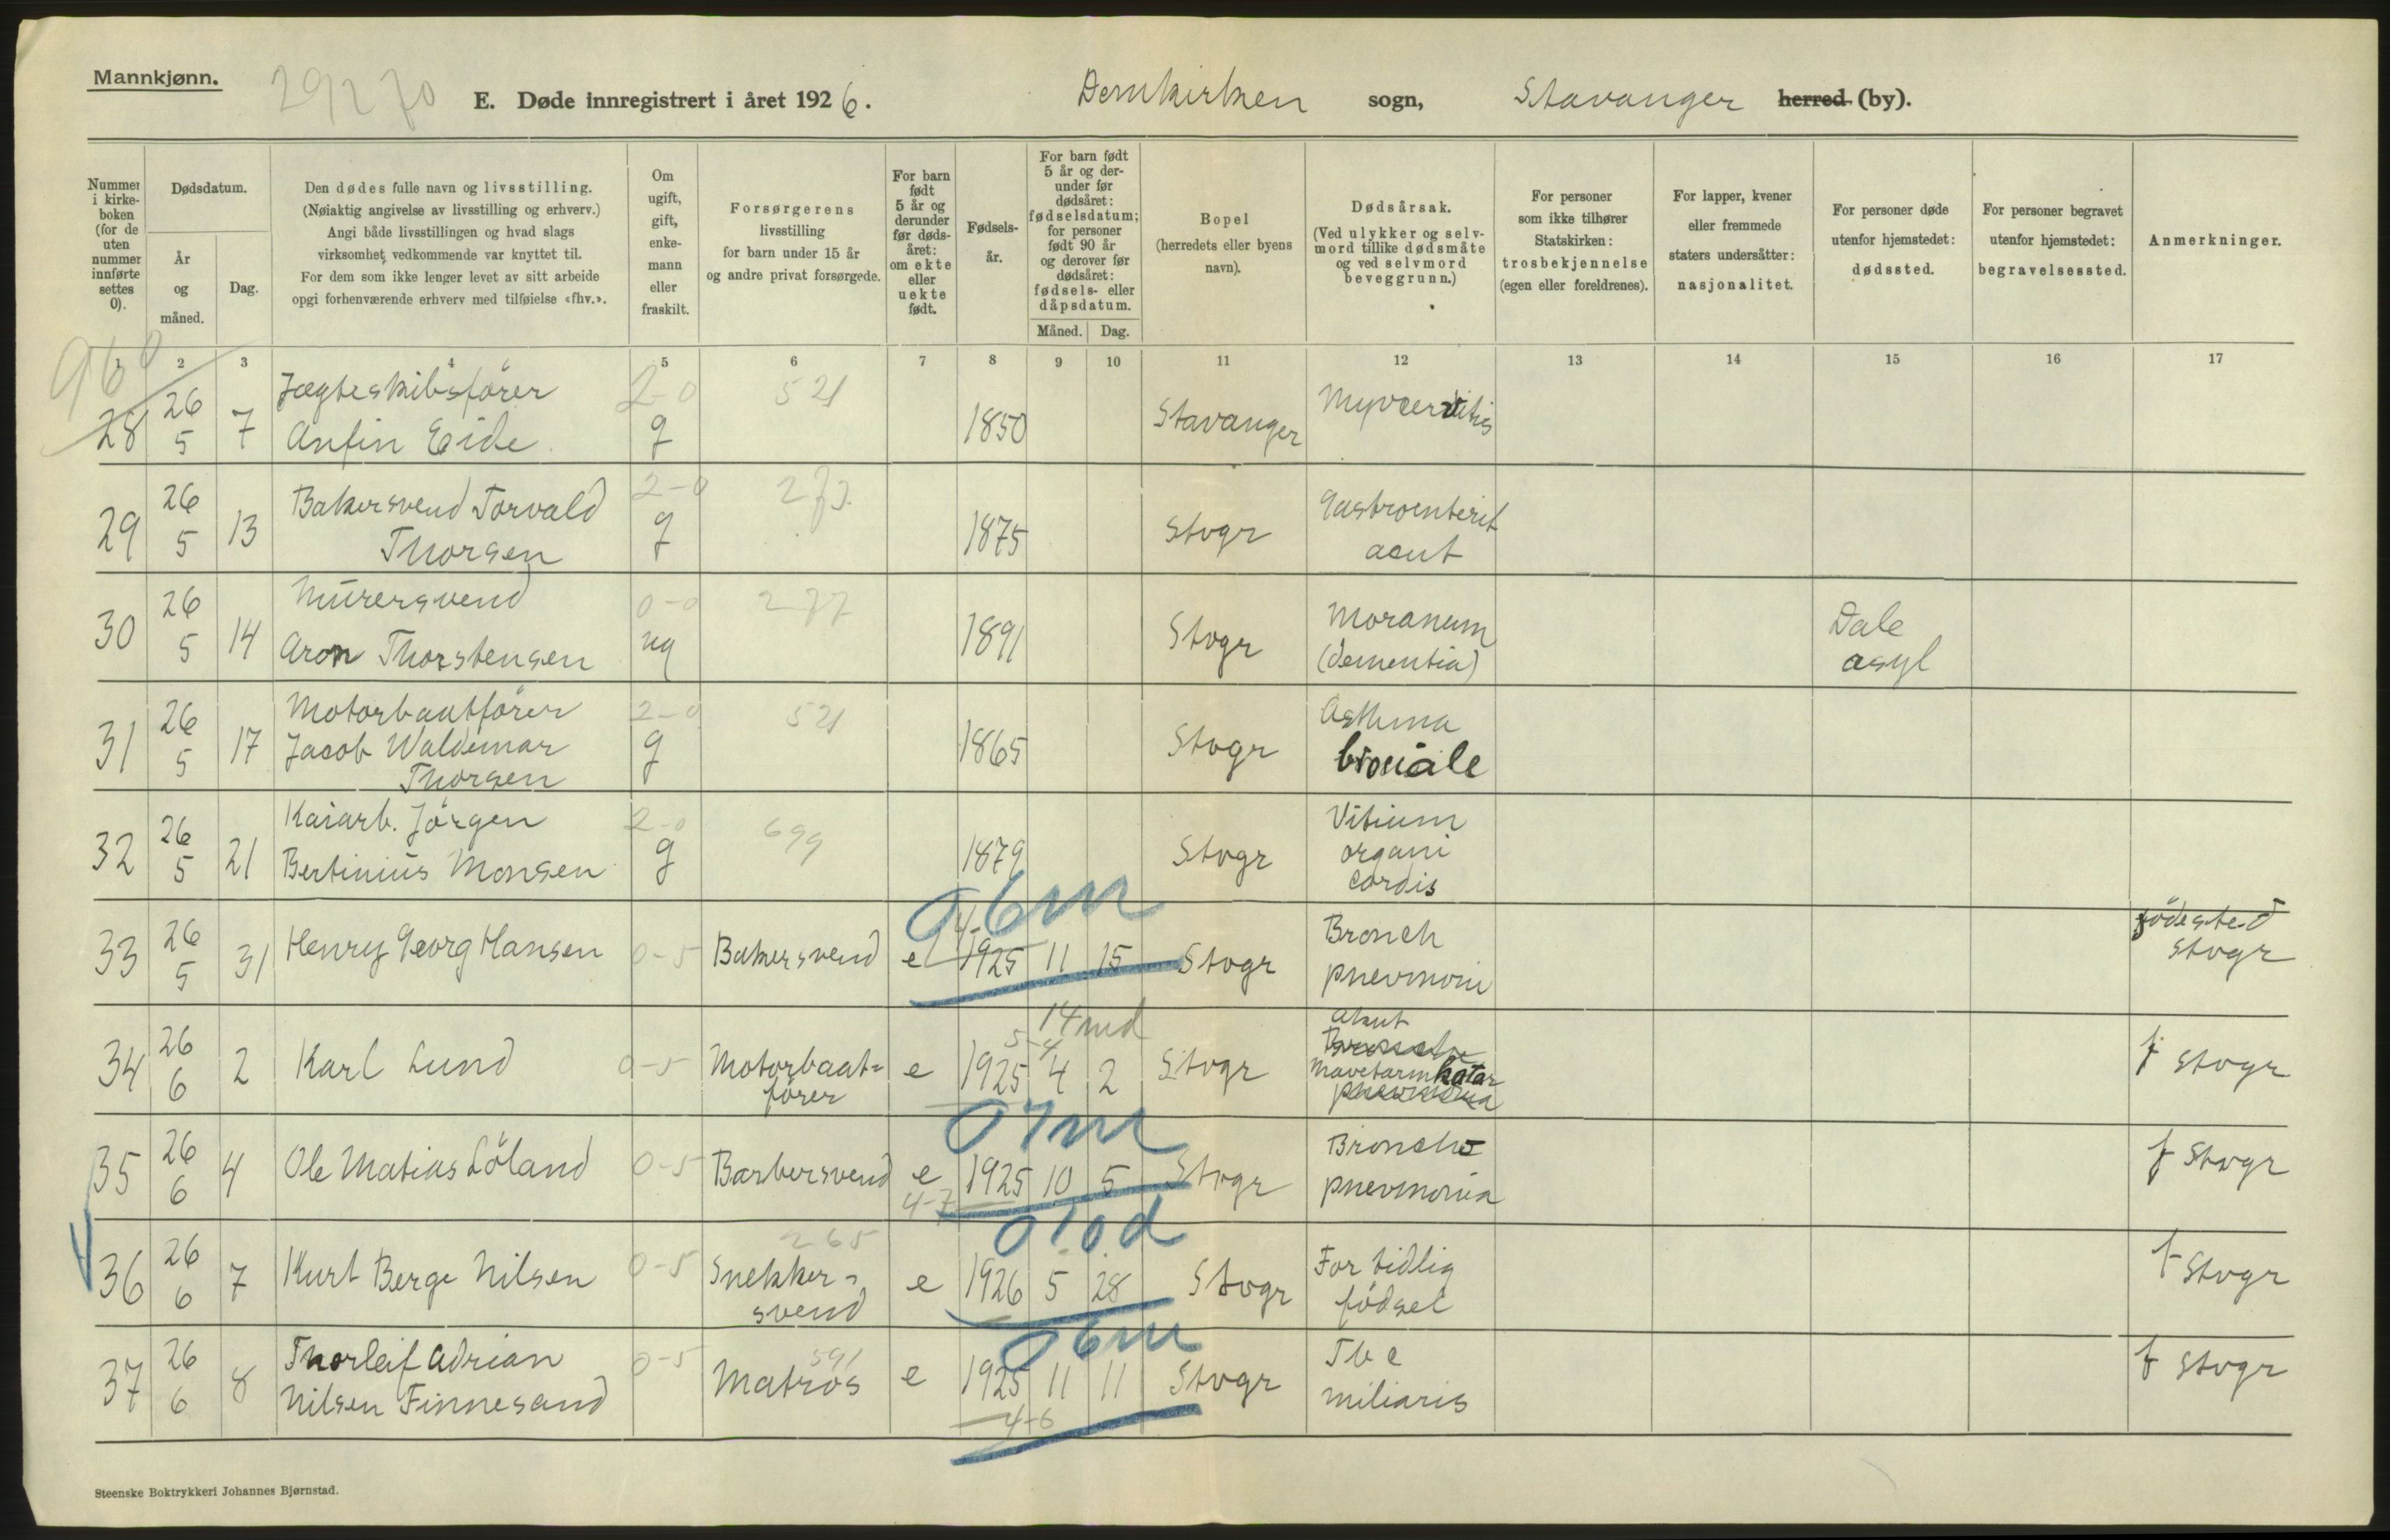 Mannkjønn.
29270
E. Døde innregistrert i året 1926.
Domkirken sogn, Stavanger herred (by).
Nummer i kirkeboken (for de uten nummer innførte settes 0).
Dødsdatum.
År og måned.
Dag.
Den dødes fulle navn og livsstilling.
(Nøiaktig angivelse av livsstilling og erhverv.)
Angi både livsstillingen og hvad slags
virksomhet vedkommende var knyttet til.
For dem som ikke lenger levet av sitt arbeide
opgi forhenværende erhverv med tilføielse «fhv.».
Om ugift, gift, enkemann eller fraskilt.
Forsørgerens
livsstilling
for barn under 15 år
og andre privat forsørgede.
For barn født 5 år og derunder før dødsåret: om ekte eller uekte født.
Fødselsår.
For barn født 5 år og derunder før dødsåret: fødselsdatum; for personer født 90 år og derover før dødsåret: fødsels- eller dåpsdatum.
Måned. Dag.
Bopel
(herredets eller byens
navn).
Dødsårsak.
(Ved ulykker og selvmord tillike dødsmåte og ved selvmord beveggrunn.)
For personer
som ikke tilhører
Statskirken:
trosbekjennelse
(egen eller foreldrenes).
For lapper, kvener
eller fremmede
staters undersåtter:
nasjonalitet.
For personer døde
utenfor hjemstedet:
dødssted.
For personer begravet
utenfor hjemstedet:
begravelsessted.
Anmerkninger.
1 2 3 4 5 6 7 8 9 10 11 12 13 14 15 16 17
960
28 26 5 7 Jægteskibsfører Anfin Eide 2-0 g 521 1850 Stavanger
29 26 5 13 Bakersvend Torvald Thorsen 2-0 g 273 1875 Stvgr Gastroenterit acut
30 26 5 14 Murersvend Aron Thorstensen 0-0 ug 277 1891 Stvgr (dementia) Dale asyl
31 26 5 17 Motorbaatfører Jacob Waldemar Thorsen 2-0 g 521 1865 Stvgr Asthma
32 26 5 21 Kaiarb. Jörgen Bertinius Monsen 2-0 g 699 1879 Stvgr Vitium organi cordis
06m
33 26 5 31 Henry Georg Hansen 0-5 Bakersvend e 1925 11 15 Stvgr Bronch pnevmoni födested Stvgr
14 md
5-4
34 26 6 2 Karl Lund 0-5 Motorbaatfører e 1925 4 2 Stvgr akut Mavetarmkatar f Stvgr
07m
35 26 6 4 Ole Matias Löland 0-5 Barbersvend e 1925 10 5 Stvgr Broncho pnevmonia f Stvgr
4-7
010d
36 26 6 7 Kurt Berge Nilsen 0-5 265 Snekkersvend e 1926 5 28 Stvgr For tidlig födsel f Stvgr
06m
37 26 6 8 Thorleif Adrian Nilsen Finnesand 0-5 591 Matros e 1925 11 11 Stvgr Tbc miliaris f Stvgr
4-6
Steenske Boktrykkeri Johannes Bjørnstad.